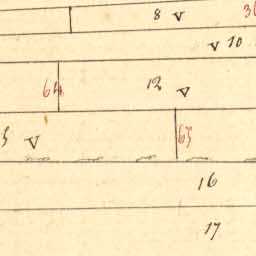 8 v 3
v 10
64 12 v
3 v 63
16
17